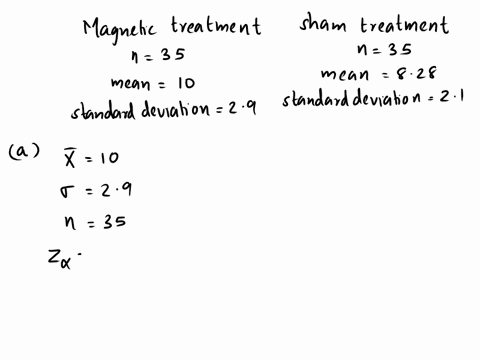 Magnetic treatment
n = 35
mean = 10
standard deviation = 2.9
sham treatment
n = 35
mean = 8.28
standard deviation = 2.1
(a) X̄ = 10
σ = 2.9
n = 35
Zα -